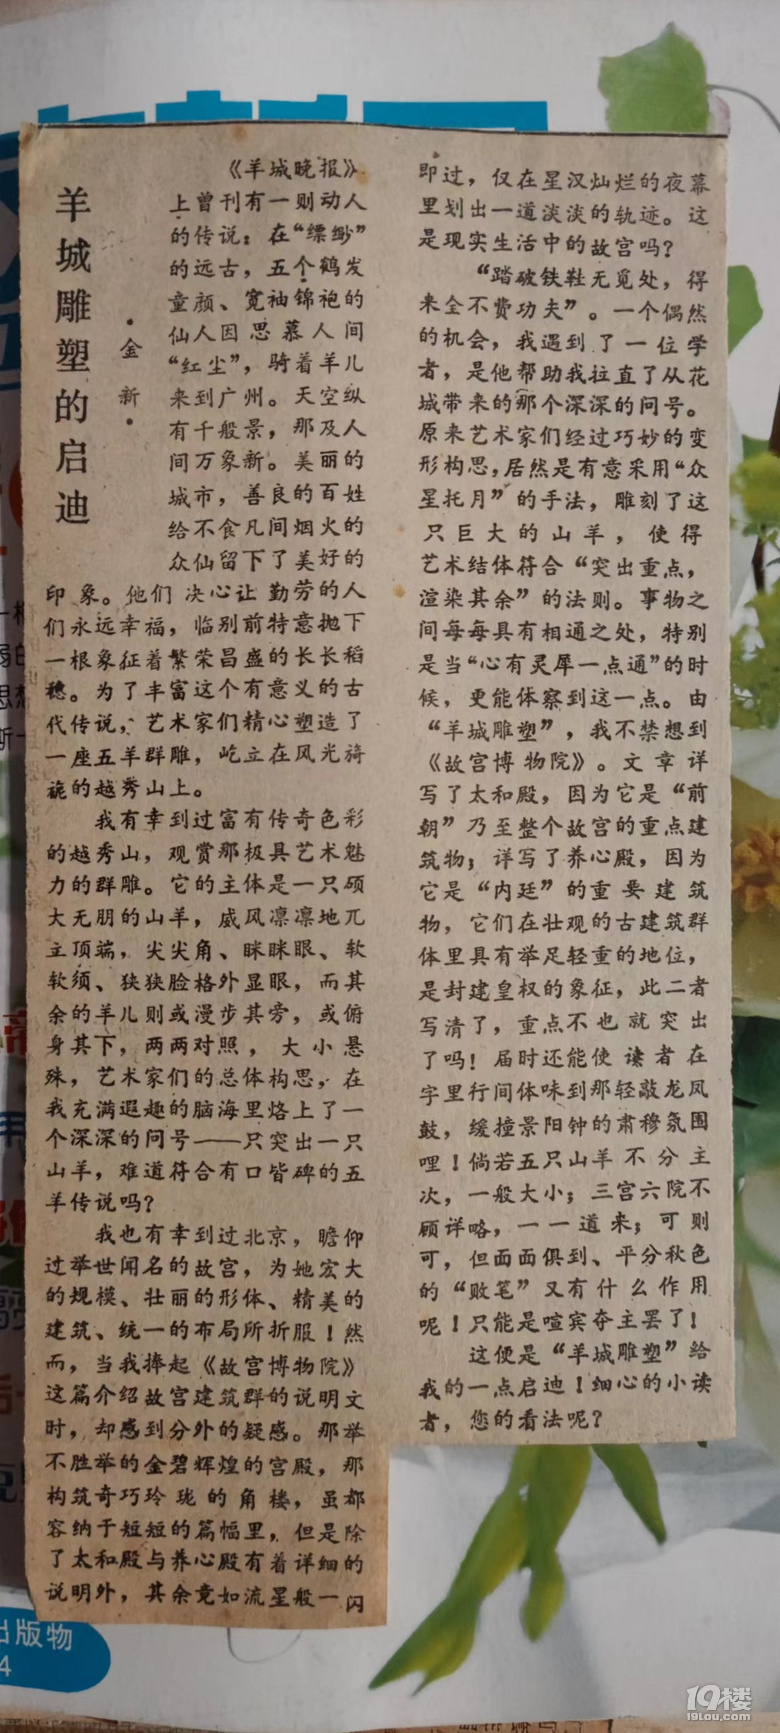 羊城雕塑的启迪
·金新·
《羊城晚报》
上曾刊有一则动人
的传说：在“缥缈”
的远古，五个鹤发
童颜、宽袖锦袍的
仙人因思慕人间
“红尘”，骑着羊儿
来到广州。天空纵
有千般景，那及人
间万象新。美丽的
城市，善良的百姓
给不食凡间烟火的
众仙留下了美好的
印象。他们决心让勤劳的人
们永远幸福，临别前特意抛下
一根象征着繁荣昌盛的长长稻
穗。为了丰富这个有意义的古
代传说，艺术家们精心塑造了
一座五羊群雕，屹立在风光旖
旎的越秀山上。
我有幸到过富有传奇色彩
的越秀山，观赏那极具艺术魅
力的群雕。它的主体是一只硕
大无朋的山羊，威风凛凛地兀
立顶端，尖尖角、眯眯眼、软
软须、狭狭脸格外显眼，而其
余的羊儿则或漫步其旁，或俯
身其下，两两对照，大小悬
殊，艺术家们的总体构思，在
我充满遐趣的脑海里烙上了一
个深深的问号——只突出一只
山羊，难道符合有口皆碑的五
羊传说吗？
我也有幸到过北京，瞻仰
过举世闻名的故宫，为她宏大
的规模、壮丽的形体、精美的
建筑、统一的布局所折服！然
而，当我捧起《故宫博物院》
这篇介绍故宫建筑群的说明文
时，却感到分外的疑惑。那举
不胜举的金碧辉煌的宫殿，那
构筑奇巧玲珑的角楼，虽都
容纳于短短的篇幅里，但是除
了太和殿与养心殿有着详细的
说明外，其余竟如流星般一闪
即过，仅在星汉灿烂的夜幕
里划出一道淡淡的轨迹。这
是现实生活中的故宫吗？
“踏破铁鞋无觅处，得
来全不费功夫”。一个偶然
的机会，我遇到了一位学
者，是他帮助我拉直了从花
城带来的那个深深的问号。
原来艺术家们经过巧妙的变
形构思，居然是有意采用“众
星托月”的手法，雕刻了这
只巨大的山羊，使得
艺术结体符合“突出重点，
渲染其余”的法则。事物之
间每每具有相通之处，特别
是当“心有灵犀一点通”的时
候，更能体察到这一点。由
“羊城雕塑”，我不禁想到
《故宫博物院》。文章详
写了太和殿，因为它是“前
朝”乃至整个故宫的重点建
筑物；详写了养心殿，因为
它是“内廷”的重要建筑
物，它们在壮观的古建筑群
体里具有举足轻重的地位，
是封建皇权的象征，此二者
写清了，重点不也就突出
了吗！届时还能使读者在
字里行间体味到那轻敲龙凤
鼓，缓撞景阳钟的肃穆氛围
哩！倘若五只山羊不分主
次，一般大小；三宫六院不
顾详略，一一道来；可则
可，但面面俱到、平分秋色
的“败笔”又有什么作用
呢！只能是喧宾夺主罢了！
这便是“羊城雕塑”给
我的一点启迪！细心的小读
者，您的看法呢？
出版物
4
19楼
19lou.com